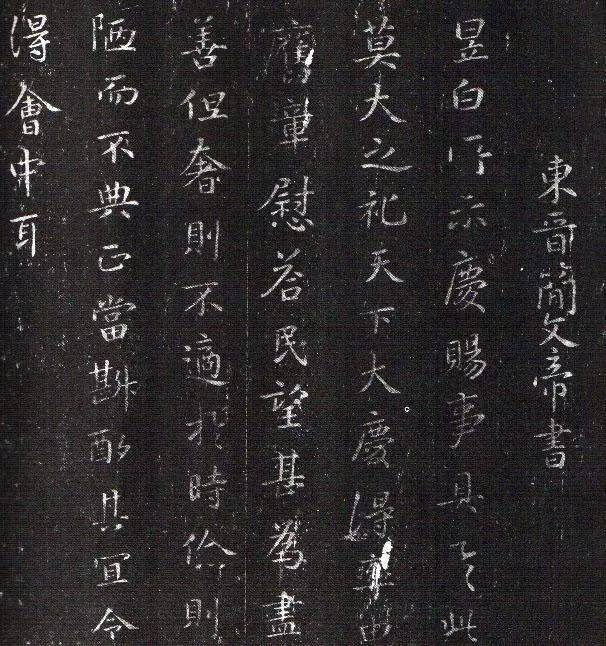 東晉簡文帝書
昱白所示慶賜事具之此
莫大之礼天下大慶得率由
舊章慰荅民望甚為盡
善但奢則不適於時儉則
陋而不典正當斟酌其宜令
得會中耳